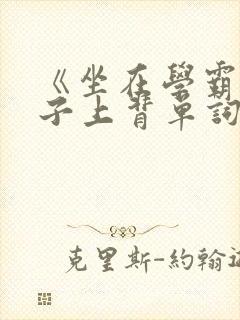 《坐在學霸
子上背單詞
克里斯-約翰遜